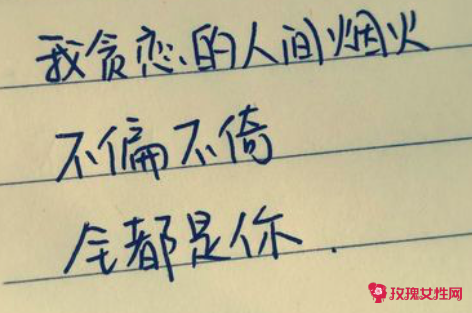 我贪恋的人间烟火
不偏不倚
全都是你.
玫瑰女性网